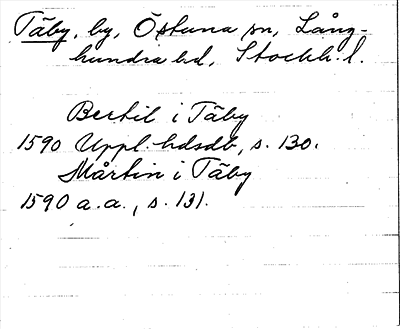 Täby, by, Östuna sn, Lång-
hundra hd, Stockh. l.
Bertil i Täby
1590 Uppl. hdsdb, s. 130.
Mårten i Täby
1590 a.a., s. 131.